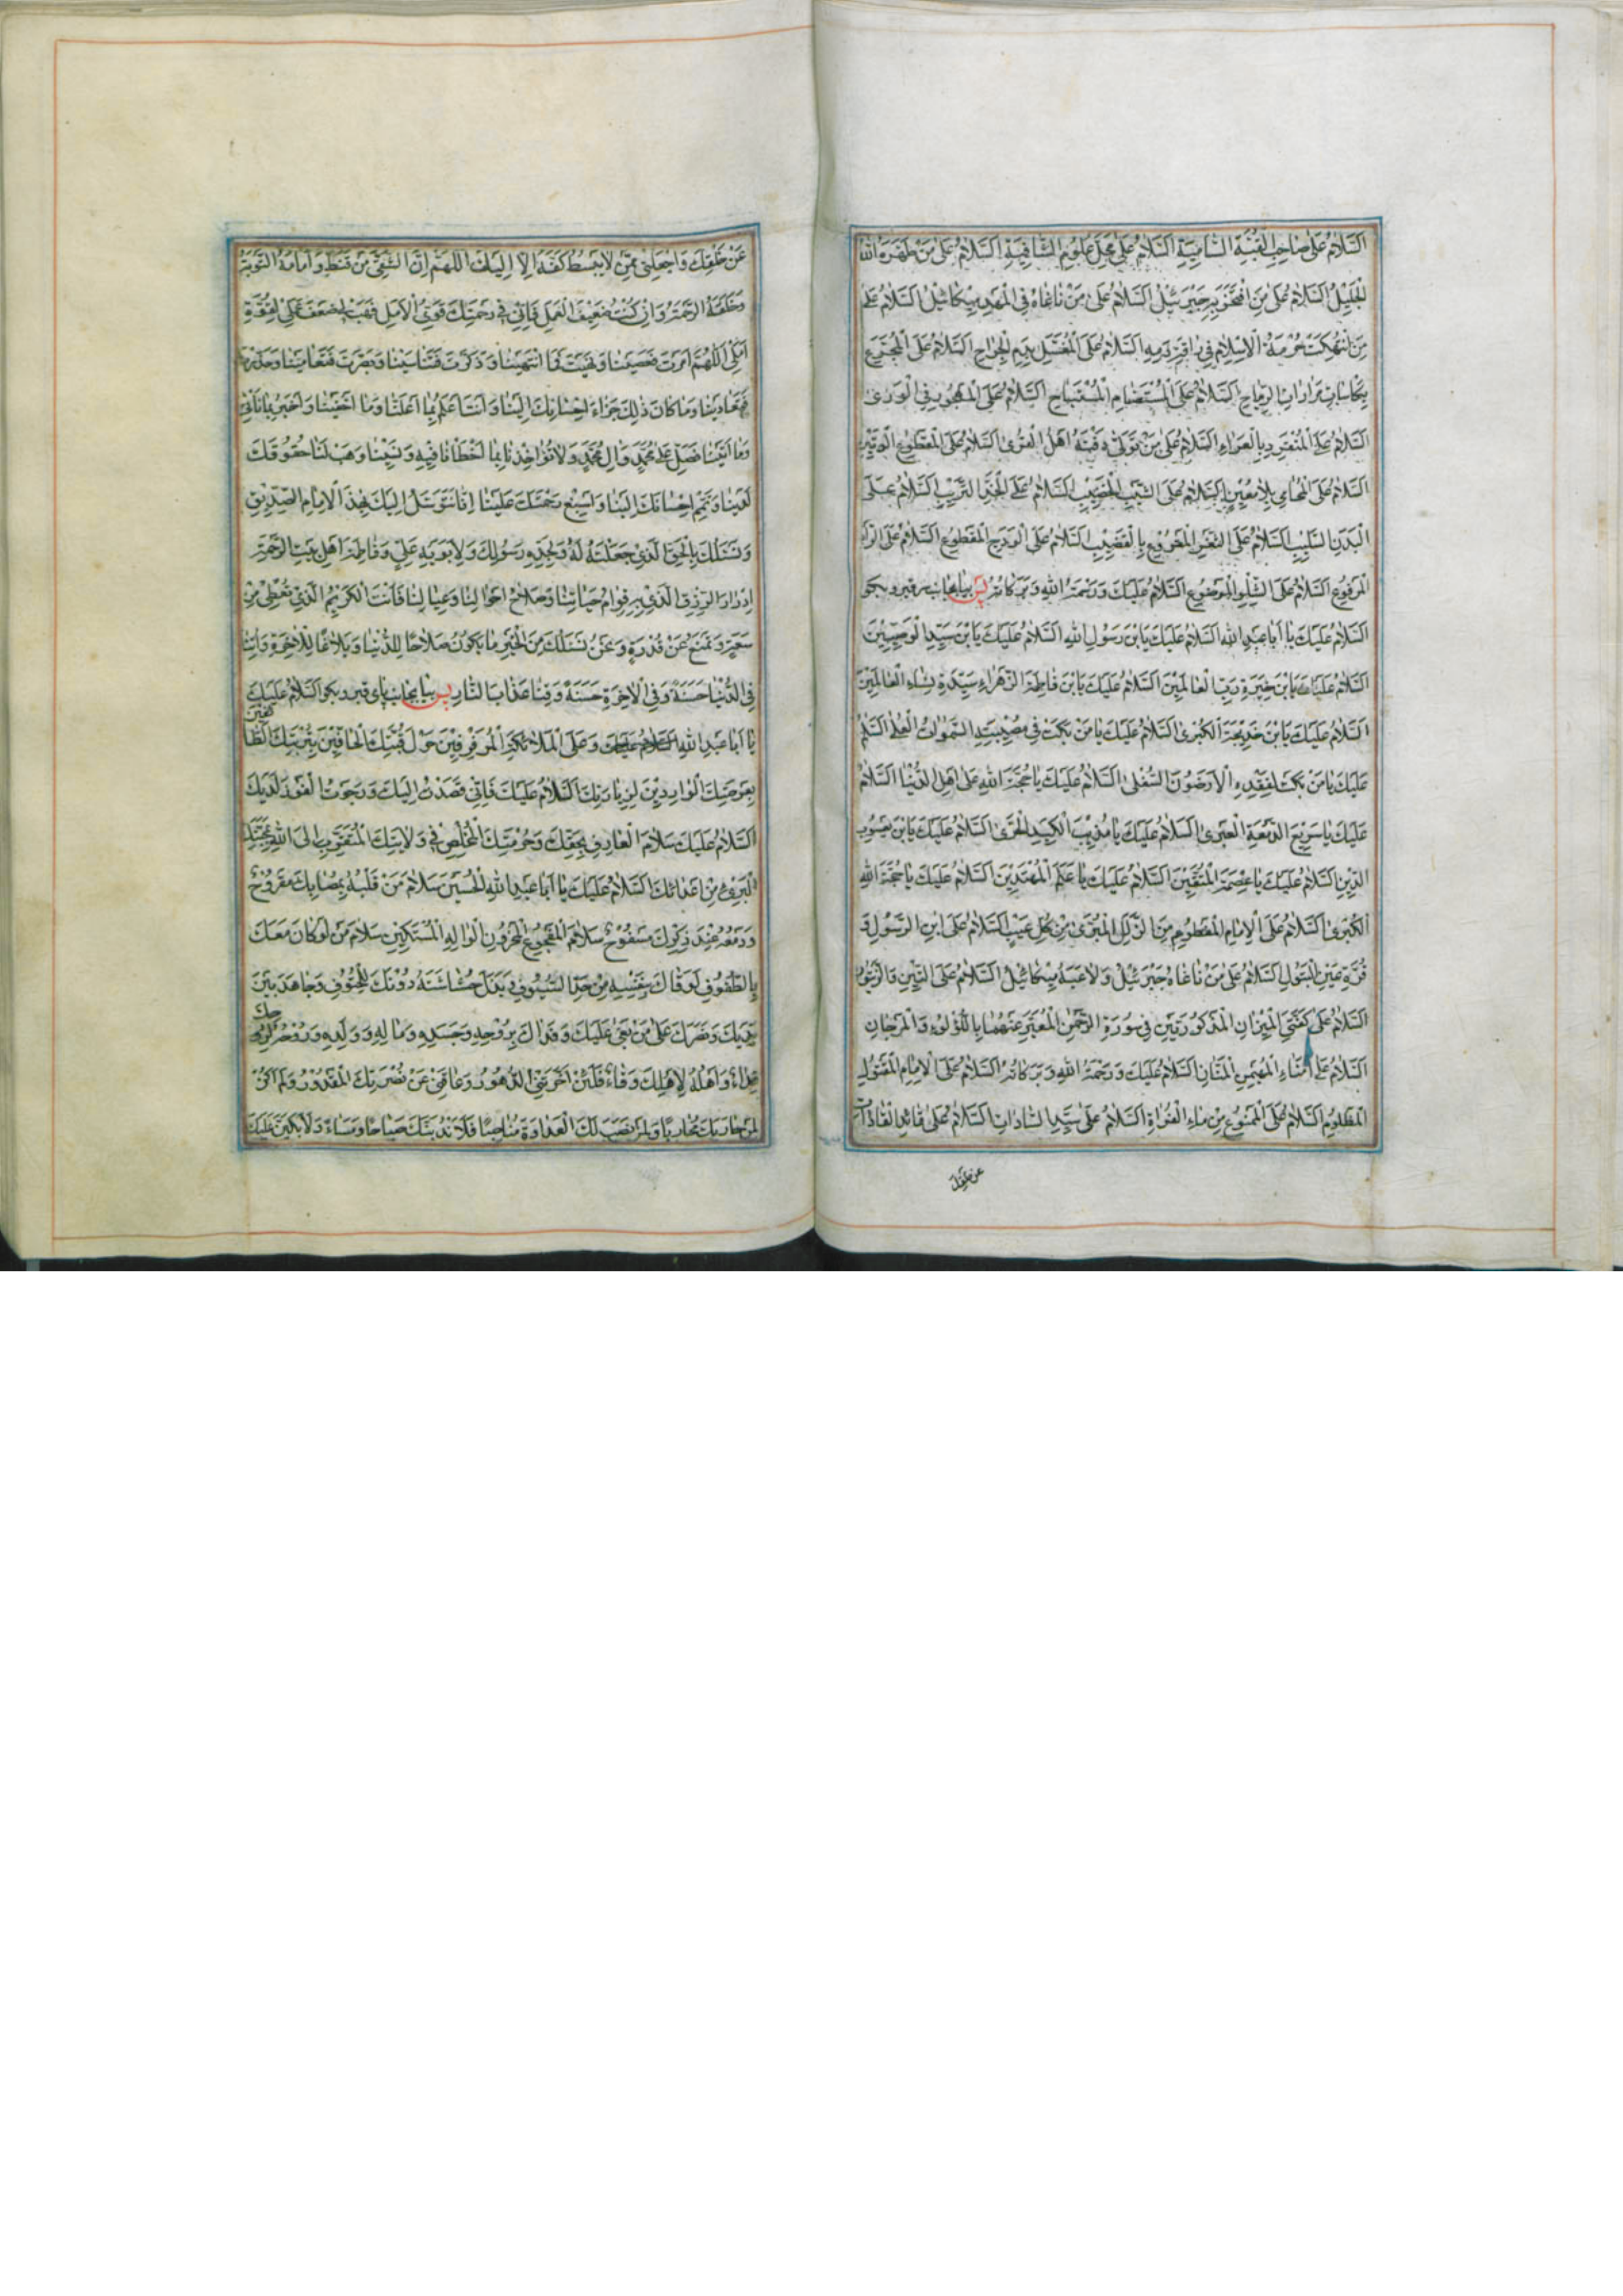 اَلسَّلامُ عَلىٰ صاحِبِ الْقُبَّةِ السّامِيَةِ اَلسَّلامُ عَلىٰ عُلُومِ السَّلامُ عَلىٰ مَنْ طَهَّرَهُ اللهُ
الْجَليلُ اَلسَّلامُ عَلىٰ مَنِ افْتَخَرَ بِهِ جَبْرَئيلُ اَلسَّلامُ عَلىٰ مَنْ ناغاهُ فِي الْمَهْدِ ميكائيلُ اَلسَّلامُ عَلىٰ
مَنِ انْتُهِكَتْ حُرْمَةُ الْاِسْلامِ في اِراقَةِ دَمِهِ اَلسَّلامُ عَلَى الْمُغَسَّلِ بِدَمِ الْجِراحِ اَلسَّلامُ عَلَى الْمُجَرَّعِ
بِكاساتِ مَراراتِ الرِّماحِ اَلسَّلامُ عَلَى الْمُسْتَضامِ الْمُسْتَباحِ اَلسَّلامُ عَلَى الْمَهْجُورِ فِي الْوَرىٰ
اَلسَّلامُ عَلَى الْمُنْفَرِدِ بِالْعَراءِ اَلسَّلامُ عَلىٰ مَنْ تَوَلّىٰ دَفْنَهُ اَهْلُ الْقُرىٰ اَلسَّلامُ عَلَى الْمَقْطُوعِ الْوَتينِ
اَلسَّلامُ عَلَى الْمُحامي بِلا مُعينٍ اَلسَّلامُ عَلَى الشَّيْبِ الْخَضيبِ اَلسَّلامُ عَلَى الْخَدِّ التَّريبِ اَلسَّلامُ عَلَى
الْبَدَنِ السَّليبِ اَلسَّلامُ عَلَى الثَّغْرِ الْمَقْرُوعِ بِالْقَضيبِ اَلسَّلامُ عَلَى الْوَدَجِ الْمَقْطُوعِ اَلسَّلامُ عَلَى الرَّأْسِ
الْمَرْفُوعِ اَلسَّلامُ عَلَى الشِّلْوِ الْمَوْضُوعِ اَلسَّلامُ عَلَيْكَ وَرَحْمَةُ اللهِ وَبَرَكاتُهُ پس بيا بجانب سر قبر و بگو
اَلسَّلامُ عَلَيْكَ يا اَبا عَبْدِ اللهِ اَلسَّلامُ عَلَيْكَ يَابْنَ رَسُولِ اللهِ اَلسَّلامُ عَلَيْكَ يَابْنَ سَيِّدِ الْوَصِيّينَ
اَلسَّلامُ عَلَيْكَ يَابْنَ خِيَرَةِ رَبِّ الْعالَمينَ اَلسَّلامُ عَلَيْكَ يَابْنَ فاطِمَةَ الزَّهْراءِ سَيِّدَةِ نِساءِ الْعالَمينَ
اَلسَّلامُ عَلَيْكَ يَابْنَ خَديجَةَ الْكُبْرىٰ اَلسَّلامُ عَلَيْكَ يا مَنْ بَكَتْ في مُصيبَتِهِ السَّمٰواتُ الْعُلىٰ اَلسَّلامُ
عَلَيْكَ يا مَنْ بَكَتْ لِفَقْدِهِ الْاَرَضُونَ السُّفْلىٰ اَلسَّلامُ عَلَيْكَ يا حُجَّةَ اللهِ عَلىٰ اَهْلِ الدُّنْيا اَلسَّلامُ
عَلَيْكَ يا سَريعَ الدَّمْعَةِ الْعَبْرىٰ اَلسَّلامُ عَلَيْكَ يا مُذيبَ الْكَبِدِ الْحَرّىٰ اَلسَّلامُ عَلَيْكَ يَابْنَ يَعْسُوبِ
الدّينِ اَلسَّلامُ عَلَيْكَ يا عِصْمَةَ الْمُتَّقينَ اَلسَّلامُ عَلَيْكَ يا عَلَمَ الْمُهْتَدينَ اَلسَّلامُ عَلَيْكَ يا حُجَّةَ اللهِ
الْكُبْرىٰ اَلسَّلامُ عَلَى الْاِمامِ الْمَفْطُومِ مِنَ الزَّلَلِ الْمُبَرّىٰ مِنْ كُلِّ عَيْبٍ اَلسَّلامُ عَلَى ابْنِ الرَّسُولِ وَ
قُرَّةِ عَيْنِ الْبَتُولِ اَلسَّلامُ عَلىٰ مَنْ ناغاهُ جَبْرَئيلُ وَلاعَبَهُ ميكائيلُ اَلسَّلامُ عَلَى التّينِ وَالزَّيْتُونِ
اَلسَّلامُ عَلىٰ كَفَّتَيِ الْميزانِ الْمَذْكُورَتَيْنِ في سُورَةِ الرَّحْمٰنِ الْمُعَبَّرِ عَنْهُما بِاللُّؤْلُؤِ وَالْمَرْجانِ
اَلسَّلامُ عَلىٰ اُمَناءِ الْمُهَيْمِنِ الْمَنّانِ اَلسَّلامُ عَلَيْكَ وَرَحْمَةُ اللهِ وَبَرَكاتُهُ اَلسَّلامُ عَلَى الْاِمامِ الْمَقْتُولِ
الْمَظْلُومِ اَلسَّلامُ عَلَى الْمَمْنُوعِ مِنْ ماءِ الْفُراةِ اَلسَّلامُ عَلىٰ سَيِّدِ السّاداتِ اَلسَّلامُ عَلىٰ قائِدِ الْقاداتِ
عَنْ خَلْقِكَ وَاجْعَلْني مِمَّنْ لا يَبْسُطُ كَفَّهُ اِلّا اِلَيْكَ اَللّهُمَّ اِنَّ الشَّقِيَّ مَنْ قَنَطَ وَاَمامَهُ التَّوْبَةُ
وَخَلْفَهُ الرَّحْمَةُ وَاِنْ كُنْتُ ضَعيفَ الْعَمَلِ فَاِنّي في رَحْمَتِكَ قَوِيُّ الْاَمَلِ فَهَبْ لِضَعْفِ عَمَلي لِقُوَّةِ
اَمَلي اَللّهُمَّ اَمَرْتَ فَعَصَيْنا وَنَهَيْتَ فَمَا انْتَهَيْنا وَذَكَّرْتَ فَتَناسَيْنا وَبَصَّرْتَ فَتَعامَيْنا وَحَذَّرْتَ
فَتَعَدَّيْنا وَما كانَ ذٰلِكَ جَزاءَ اِحْسانِكَ اِلَيْنا وَاَنْتَ اَعْلَمُ بِما اَعْلَنّا وَما اَخْفَيْنا وَاَخْبَرُ بِما نَأْتي
وَما اَتَيْنا فَصَلِّ عَلىٰ مُحَمَّدٍ وَآلِ مُحَمَّدٍ وَلا تُؤاخِذْنا بِما اَخْطَأْنا فيهِ وَنَسينا وَهَبْ لَنا حُقُوقَكَ
لَدَيْنا وَتَمِّمْ اِحْسانَكَ اِلَيْنا وَاَسْبِغْ رَحْمَتَكَ عَلَيْنا اِنّا نَتَوَسَّلُ اِلَيْكَ بِهٰذَا الْاِمامِ الصِّدّيقِ
وَنَسْئَلُكَ بِالْحَقِّ الَّذي جَعَلْتَهُ لَهُ وَلِجَدِّهِ رَسُولِكَ وَلِاَبَوَيْهِ عَلِيٍّ وَفاطِمَةَ اَهْلِ بَيْتِ الرَّحْمَةِ
اِدْرارَ الرِّزْقِ الَّذي بِهِ قِوامُ حَياتِنا وَصَلاحُ اَحْوالِنا وَعِيالِنا فَاَنْتَ الْكَريمُ الَّذي تُعْطي مِنْ
سَعَةٍ وَتَمْنَعُ عَنْ قُدْرَةٍ وَنَحْنُ نَسْئَلُكَ مِنَ الْخَيْرِ ما يَكُونُ صَلاحًا لِلدُّنْيا وَبَلاغًا لِلْاٰخِرَةِ وَآتِنا
فِي الدُّنْيا حَسَنَةً وَفِي الْاٰخِرَةِ حَسَنَةً وَقِنا عَذابَ النّارِ پس بيا بجانب پاى قبر و بگو اَلسَّلامُ عَلَيْكَ
يا اَبا عَبْدِ اللهِ السلام عليك وَعَلَى الْمَلائِكَةِ الْمُرَفْرِفينَ حَوْلَ قُبَّتِكَ الْحافّينَ بِتُرْبَتِكَ الطّائفين
بِعَرْصَتِكَ الْوارِدينَ لِزِيارَتِكَ اَلسَّلامُ عَلَيْكَ فَاِنّي قَصَدْتُ اِلَيْكَ وَرَجَوْتُ الْفَوْزَ لَدَيْكَ
اَلسَّلامُ عَلَيْكَ سَلامَ الْعارِفِ بِحَقِّكَ وَحُرْمَتِكَ الْمُخْلِصِ في وَلايَتِكَ الْمُتَقَرِّبِ اِلَى اللهِ بِمَحَبَّتِكَ
الْبَريءِ مِنْ اَعْدائِكَ اَلسَّلامُ عَلَيْكَ يا اَبا عَبْدِ اللهِ الْحُسَيْنَ سَلامَ مَنْ قَلْبُهُ بِمُصابِكَ مَقْرُوحٌ
وَدَمْعُهُ عِنْدَ ذِكْرِكَ مَسْفُوحٌ سَلامَ الْمَفْجُوعِ الْمَحْزُونِ الْوالِهِ الْمُسْتَكينِ سَلامَ مَنْ لَوْ كانَ مَعَكَ
بِالطُّفُوفِ لَوَقاكَ بِنَفْسِهِ مِنْ حَدِّ السُّيُوفِ وَبَذَلَ حُشاشَتَهُ دُونَكَ لِلْحُتُوفِ وَجاهَدَ بَيْنَ
يَدَيْكَ وَنَصَرَكَ عَلىٰ مَنْ بَغىٰ عَلَيْكَ وَفَداكَ بِرُوحِهِ وَجَسَدِهِ وَمالِهِ وَوَلَدِهِ وَرُوحُهُ لِرُوحِكَ
فِداءٌ وَاَهْلُهُ لِاَهْلِكَ وِقاءٌ فَلَئِنْ اَخَّرَتْنِي الدُّهُورُ وَعاقَني عَنْ نُصْرَتِكَ الْمَقْدُورُ وَلَمْ اَكُنْ
لِمَنْ حارَبَكَ مُحارِبًا وَلِمَنْ نَصَبَ لَكَ الْعَداوَةَ مُناصِبًا فَلَاَنْدُبَنَّكَ صَباحًا وَمَساءً وَلَاَبْكِيَنَّ عَلَيْكَ
عن خلقك